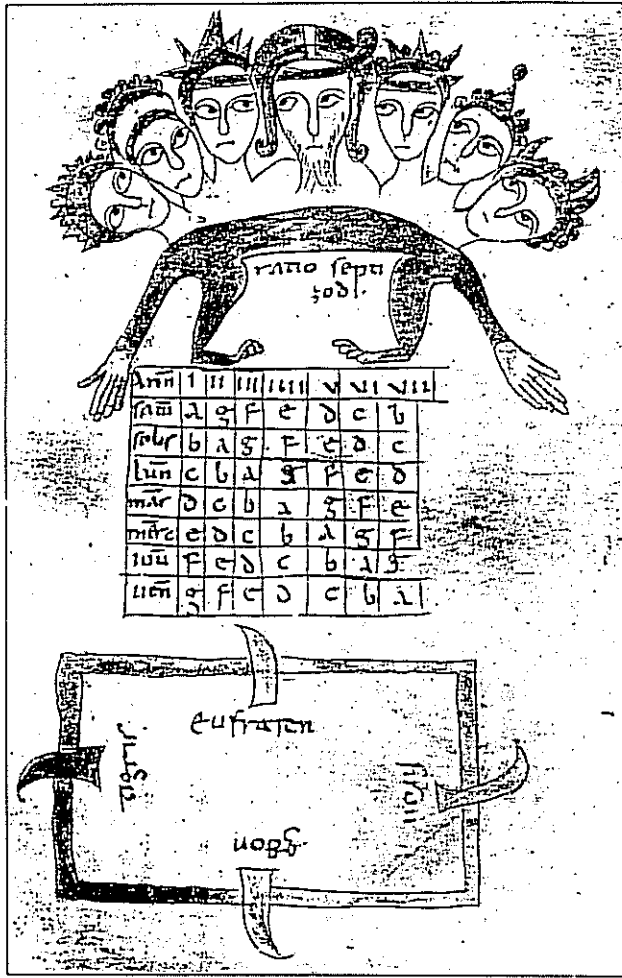 ratio septi
zodi.
ann̄ I II III IIII V VI VII
a g f e d c b
b a g f e d c
lun̄ c b a g f e d
mār d c b a g f e
m̄erc e d c b a g f
iou̅ f e d c b a g
uen̄ g f e d c b a
eufraten
tigris.
fison
geon.